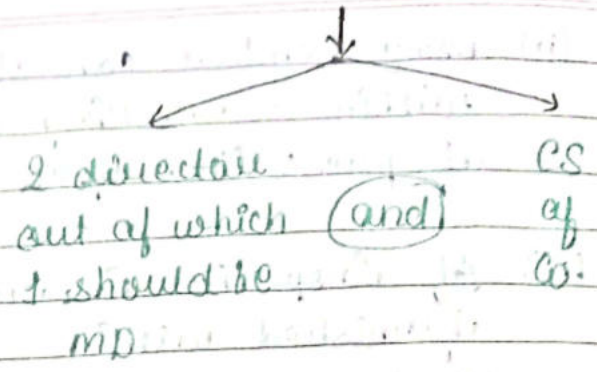 2 directors
out of which
1 should be
MD
and
CS
of
Co.